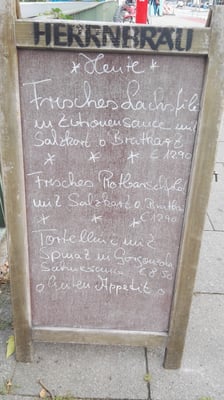 HERRNBRÄU
* Heute *
Frisches Lachsfile
in Zitronensauce mit
Salzkart o Bratkart
* * * € 12 90
Frisches Rotbarschfile
mit Salzkart o. Bratkar
* * * € 12 90
Tortellini mit
Spinat in Gorgonzola
Sahnesauce € 8,50
Guten Appetit